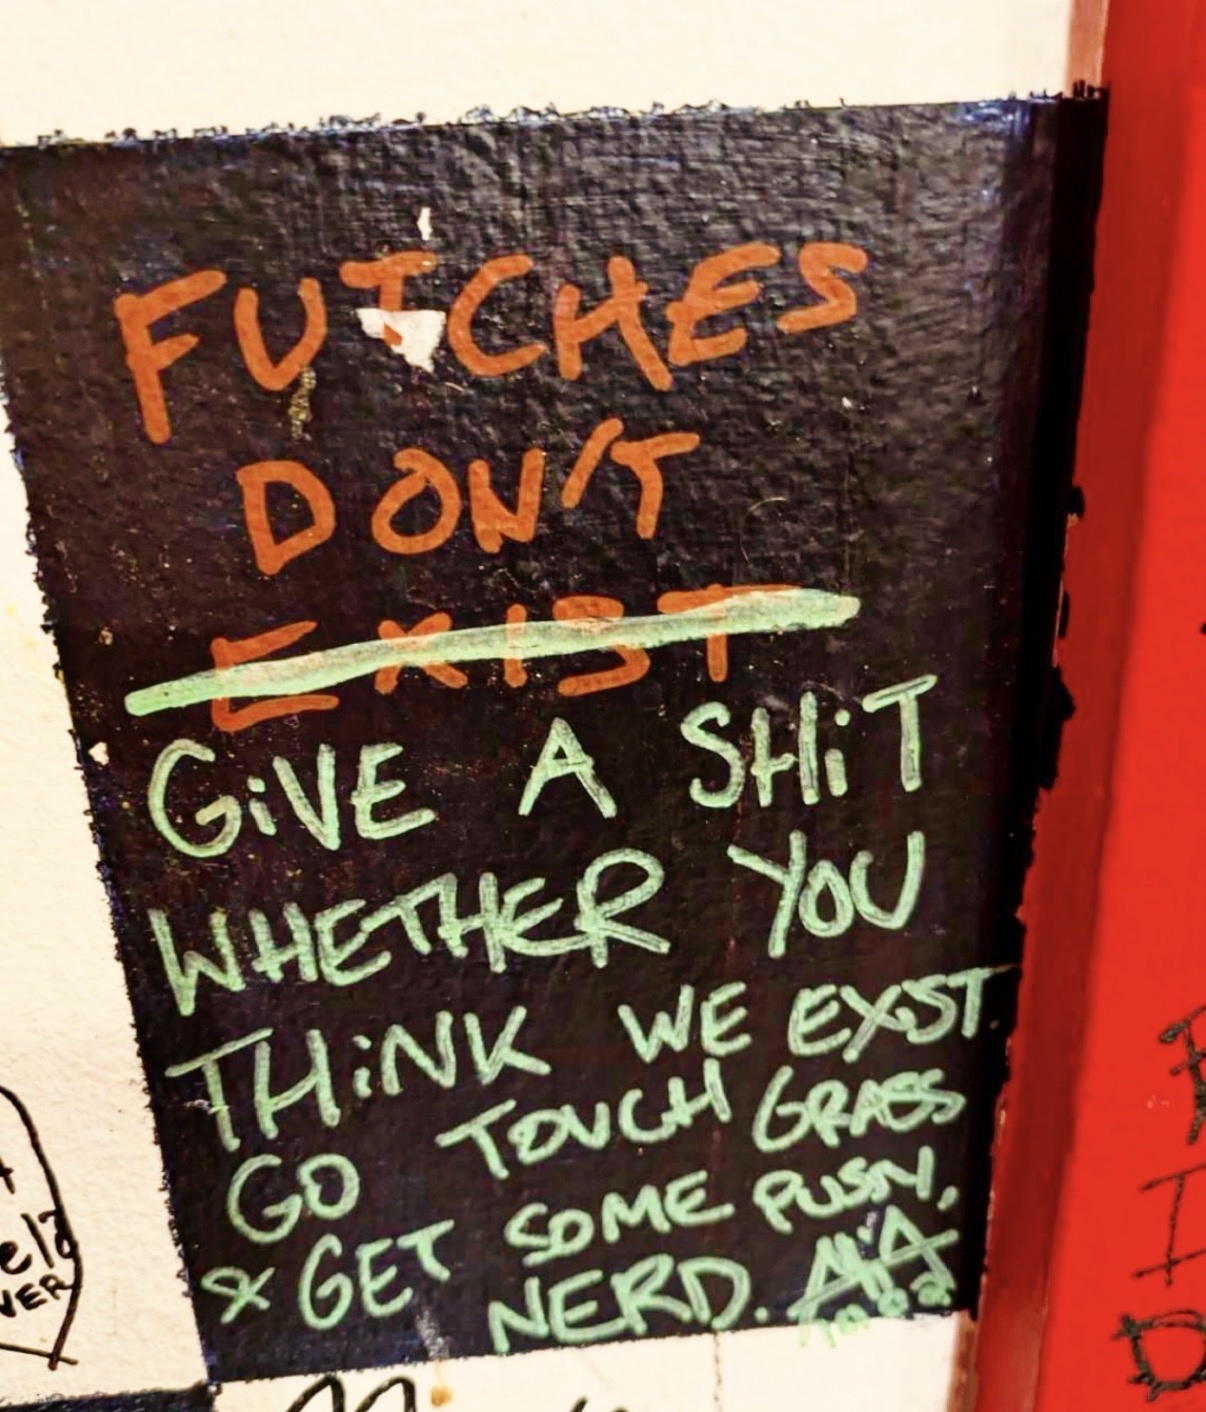 FUTCHES
DON'T
EXIST
GiVE A SHiT
WHETHER YOU
THiNK WE EXIST.
GO TOUCH GRASS
& GET SOME PUSSY,
NERD.